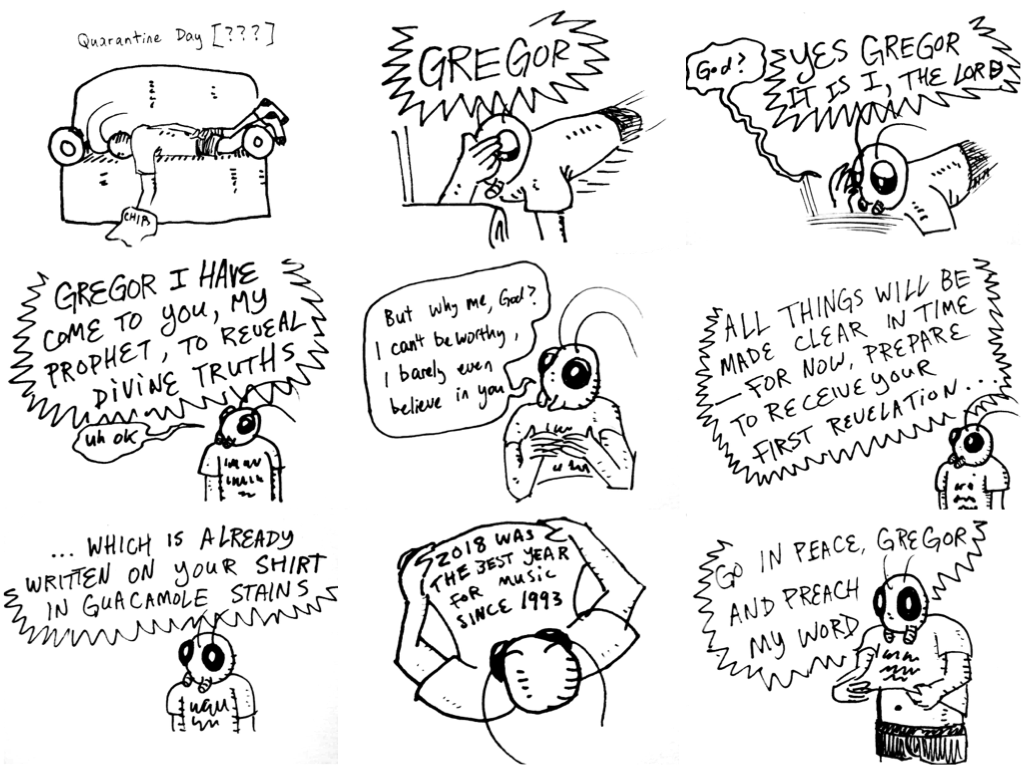 Quarantine Day [???]
CHIPS
GREGOR
God?
YES GREGOR
IT IS I, THE LORD
GREGOR I HAVE
COME TO YOU, MY
PROPHET, TO REVEAL
DIVINE TRUTHS
uh ok
But why me, God?
I can't be worthy,
I barely even
believe in you
ALL THINGS WILL BE
MADE CLEAR IN TIME
— FOR NOW, PREPARE
TO RECEIVE YOUR
FIRST REVELATION...
... WHICH IS ALREADY
WRITTEN ON YOUR SHIRT
IN GUACAMOLE STAINS
2018 WAS
THE BEST YEAR
FOR MUSIC
SINCE 1993
GO IN PEACE, GREGOR
AND PREACH
MY WORD